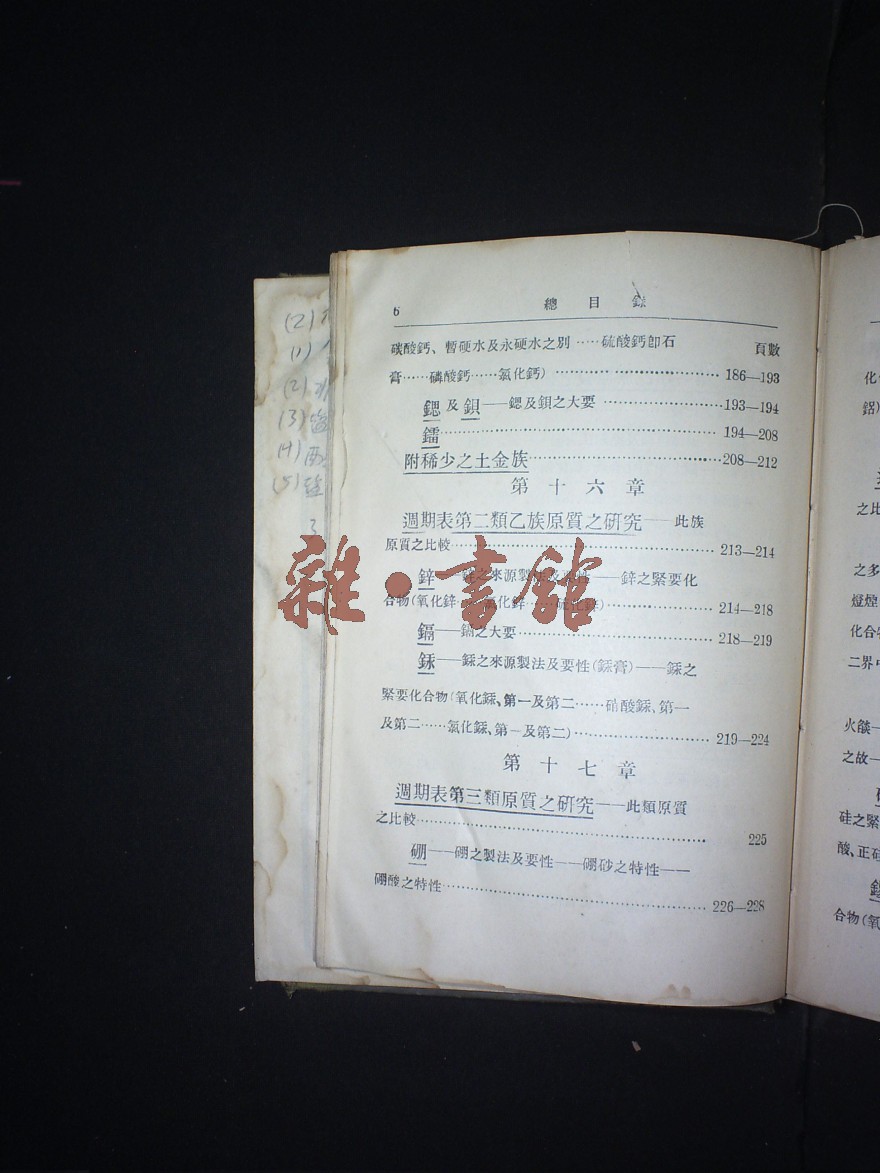 6 總目錄
碳酸鈣、暫硬水及永硬水之別……硫酸鈣卽石 頁數
膏……磷酸鈣……氯化鈣)……………………186—193
鍶及鋇——鍶及鋇之大要……………………193—194
鐳……………………194—208
附稀少之土金族……………………208—212
第十六章
週期表第二類乙族原質之研究——此族
原質之比較……………………213—214
鋅——鋅之來源製法及要性——鋅之緊要化
合物(氧化鋅……氯化鋅……硫化鋅)……………………214—218
鎘——鎘之大要……………………218—219
銾——銾之來源製法及要性(銾膏)——銾之
緊要化合物(氧化銾、第一及第二……硝酸銾、第一
及第二……氯化銾、第一及第二)……………………219—224
第十七章
週期表第三類原質之研究——此類原質
之比較……………………225
硼——硼之製法及要性——硼砂之特性——
硼酸之特性……………………226—228
雜·書館
(2)
(1)
(2)
(3)
(4)
(5)
化
鋁)
之比
之多
燈煙
化合物
二界
火燄—
之故—
硅之緊
酸、正硅
合物(氧